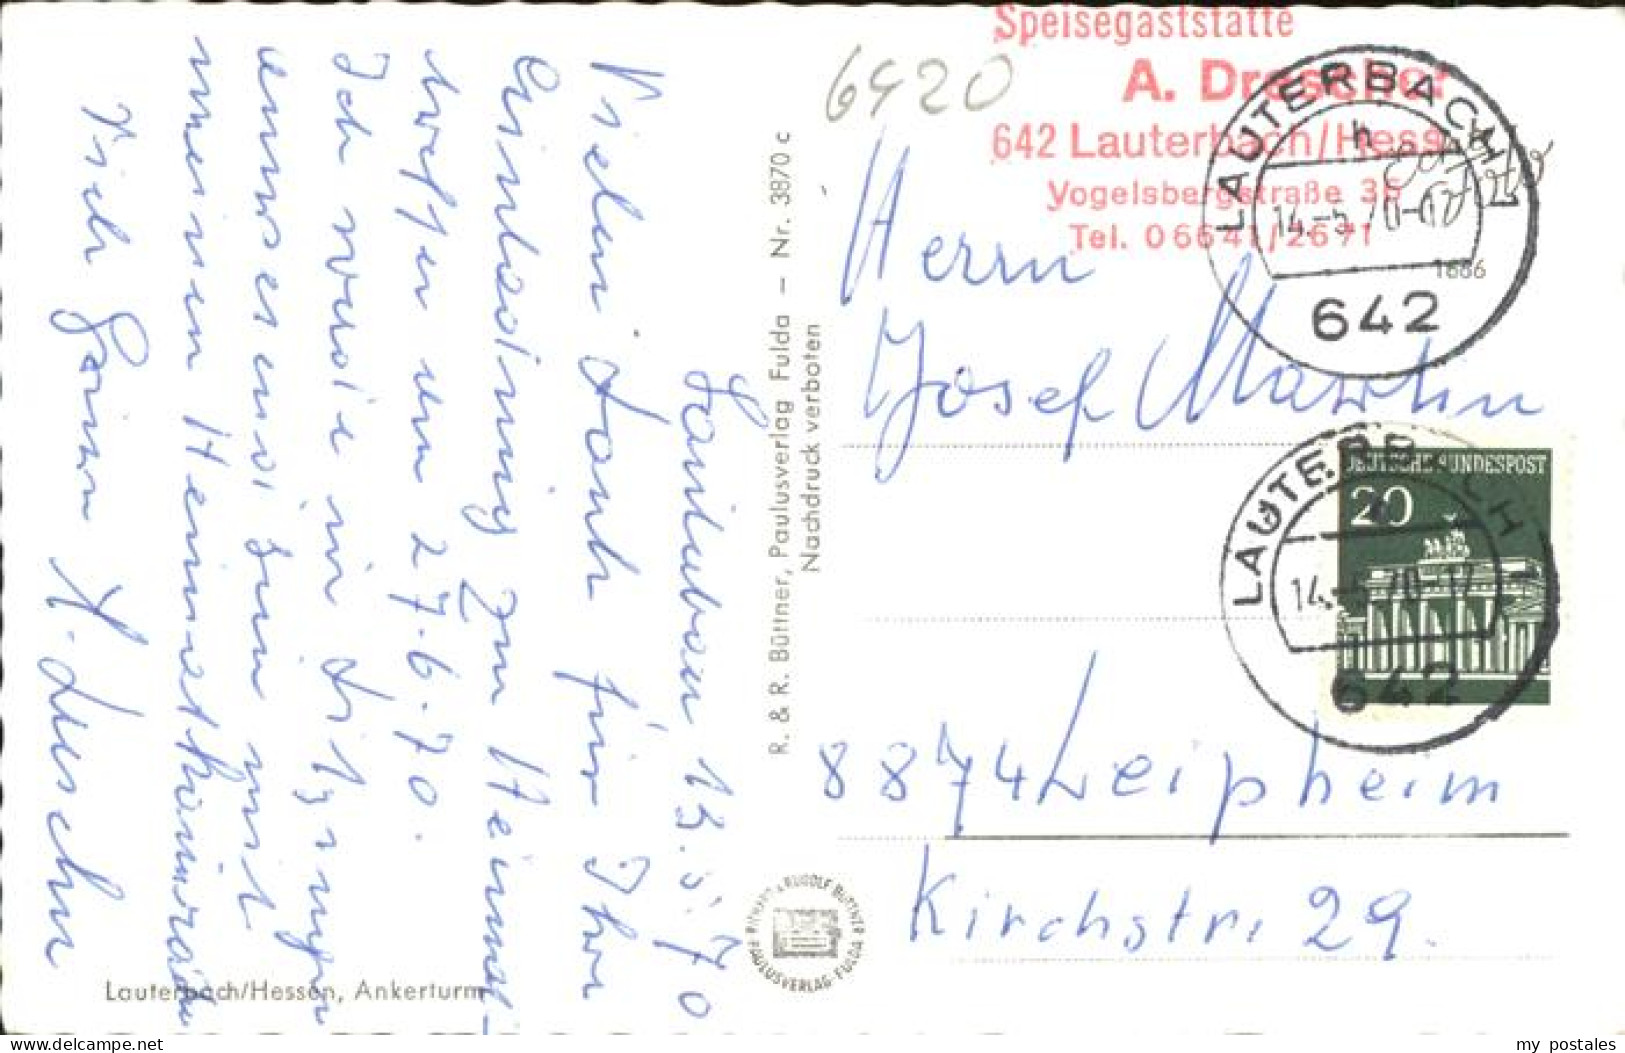 Lauterbach 13.5.70
Vielen Dank für Ihre
Einladung zum Heimat-
treffen am 27.6.70.
Ich werde in
anwesend sein mit
meinem
Mich
R. & R. Büttner, Paulusverlag Fulda – Nr. 3870 c
Nachdruck verboten
Lauterbach/Hessen, Ankerturm
RUDOLF BÜTTNER
PAULUSVERLAG · FULDA
6420
Speisegaststätte
A. Drescher
642 Lauterbach/Hess
Vogelsbergstraße 35
Tel. 06641/2671
LAUTERBACH 1
h
14.-5.70-17
1886
642
Herrn
Josef Martin
DEUTSCHE BUNDESPOST
20
LAUTERBACH 1
14.-5.70-17
642
8874 Leipheim
Kirchstr. 29.
my postales